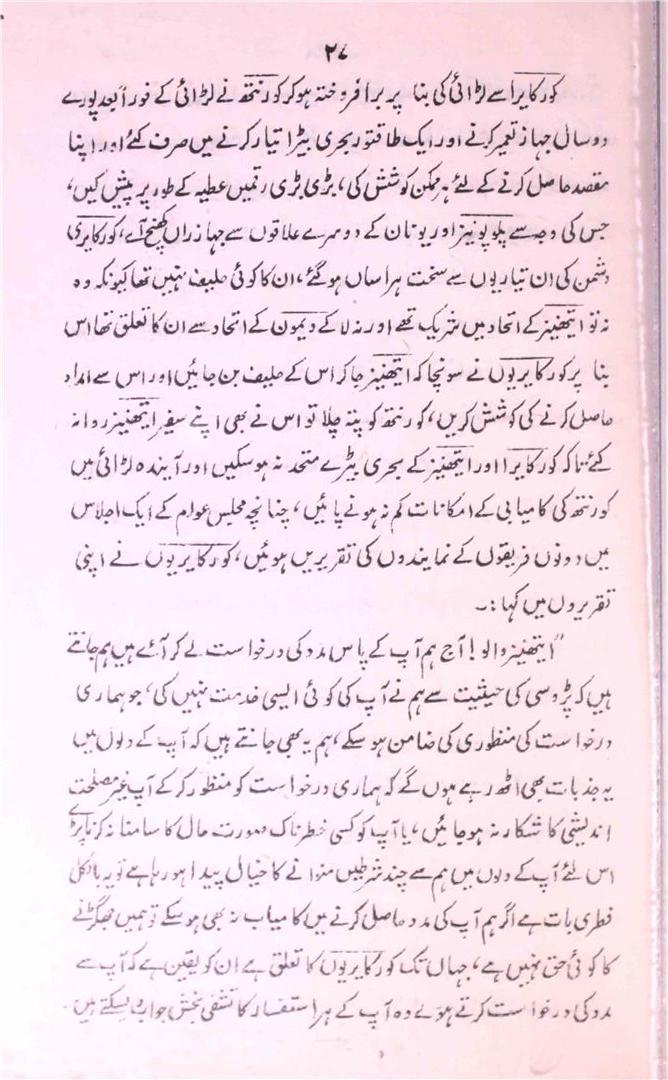 ۲۷
کورکایرا سے لڑائی کی بنا پر برافروختہ ہوکر کورنتھ نے لڑائی کے فوراً بعد پورے
دو سال جہاز تعمیر کرنے اور ایک طاقتور بحری بیڑا تیار کرنے میں صرف کئے اور اپنا
مقصد حاصل کرنے کے لئے ہر ممکن کوشش کی، بڑی بڑی رقمیں عطیہ کے طور پر پیش کیں،
جس کی وجہ سے پلوپونیز اور یونان کے دوسرے علاقوں سے جہازراں کھنچ آئے، کورکایری
دشمن کی ان تیاریوں سے سخت ہراساں ہوگئے، ان کا کوئی حلیف نہیں تھا کیونکہ وہ
نہ تو ایتھنیز کے اتحاد میں شریک تھے اور نہ لاکے دیمون کے اتحاد سے ان کا تعلق تھا اس
بنا پر کورکایریوں نے سونچا کہ ایتھنیز جاکر اس کے حلیف بن جائیں اور اس سے امداد
حاصل کرنے کی کوشش کریں، کورنتھ کو پتہ چلا تو اس نے بھی اپنے سفیر ایتھنیز روانہ
کئے تاکہ کورکایرا اور ایتھنیز کے بحری بیڑے متحد نہ ہوسکیں اور آیندہ لڑائی میں
کورنتھ کی کامیابی کے امکانات کم نہ ہونے پائیں، چنانچہ مجلس عوام کے ایک اجلاس
میں دونوں فریقوں کے نمایندوں کی تقریریں ہوئیں، کورکایریوں نے اپنی
تقریروں میں کہا :۔
”ایتھنیز والو! آج ہم آپ کے پاس مدد کی درخواست لے کر آئے ہیں ہم جانتے
ہیں کہ پڑوسی کی حیثیت سے ہم نے آپ کی کوئی ایسی خدمت نہیں کی، جو ہماری
درخواست کی منظوری کی ضامن ہوسکے، ہم یہ بھی جانتے ہیں کہ آپ کے دلوں میں
یہ جذبات بھی اٹھ رہے ہوں گے کہ ہماری درخواست کو منظور کرکے آپ غیر مصلحت
اندیشی کا شکار نہ ہوجائیں، یا آپ کو کسی خطرناک صورت حال کا سامنا نہ کرنا پڑے
اس لئے آپ کے دلوں میں ہم سے چند شرطیں منوانے کا خیال پیدا ہورہا ہے تو یہ بالکل
فطری بات ہے اگر ہم آپ کی مدد حاصل کرنے میں کامیاب نہ بھی ہوسکے تو ہمیں جھگڑنے
کا کوئی حق نہیں ہے، جہاں تک کورکایریوں کا تعلق ہے ان کو یقین ہے کہ آپ سے
مدد کی درخواست کرتے ہوئے وہ آپ کے ہر استفسار کا تشفی بخش جواب دیسکتے ہیں۔